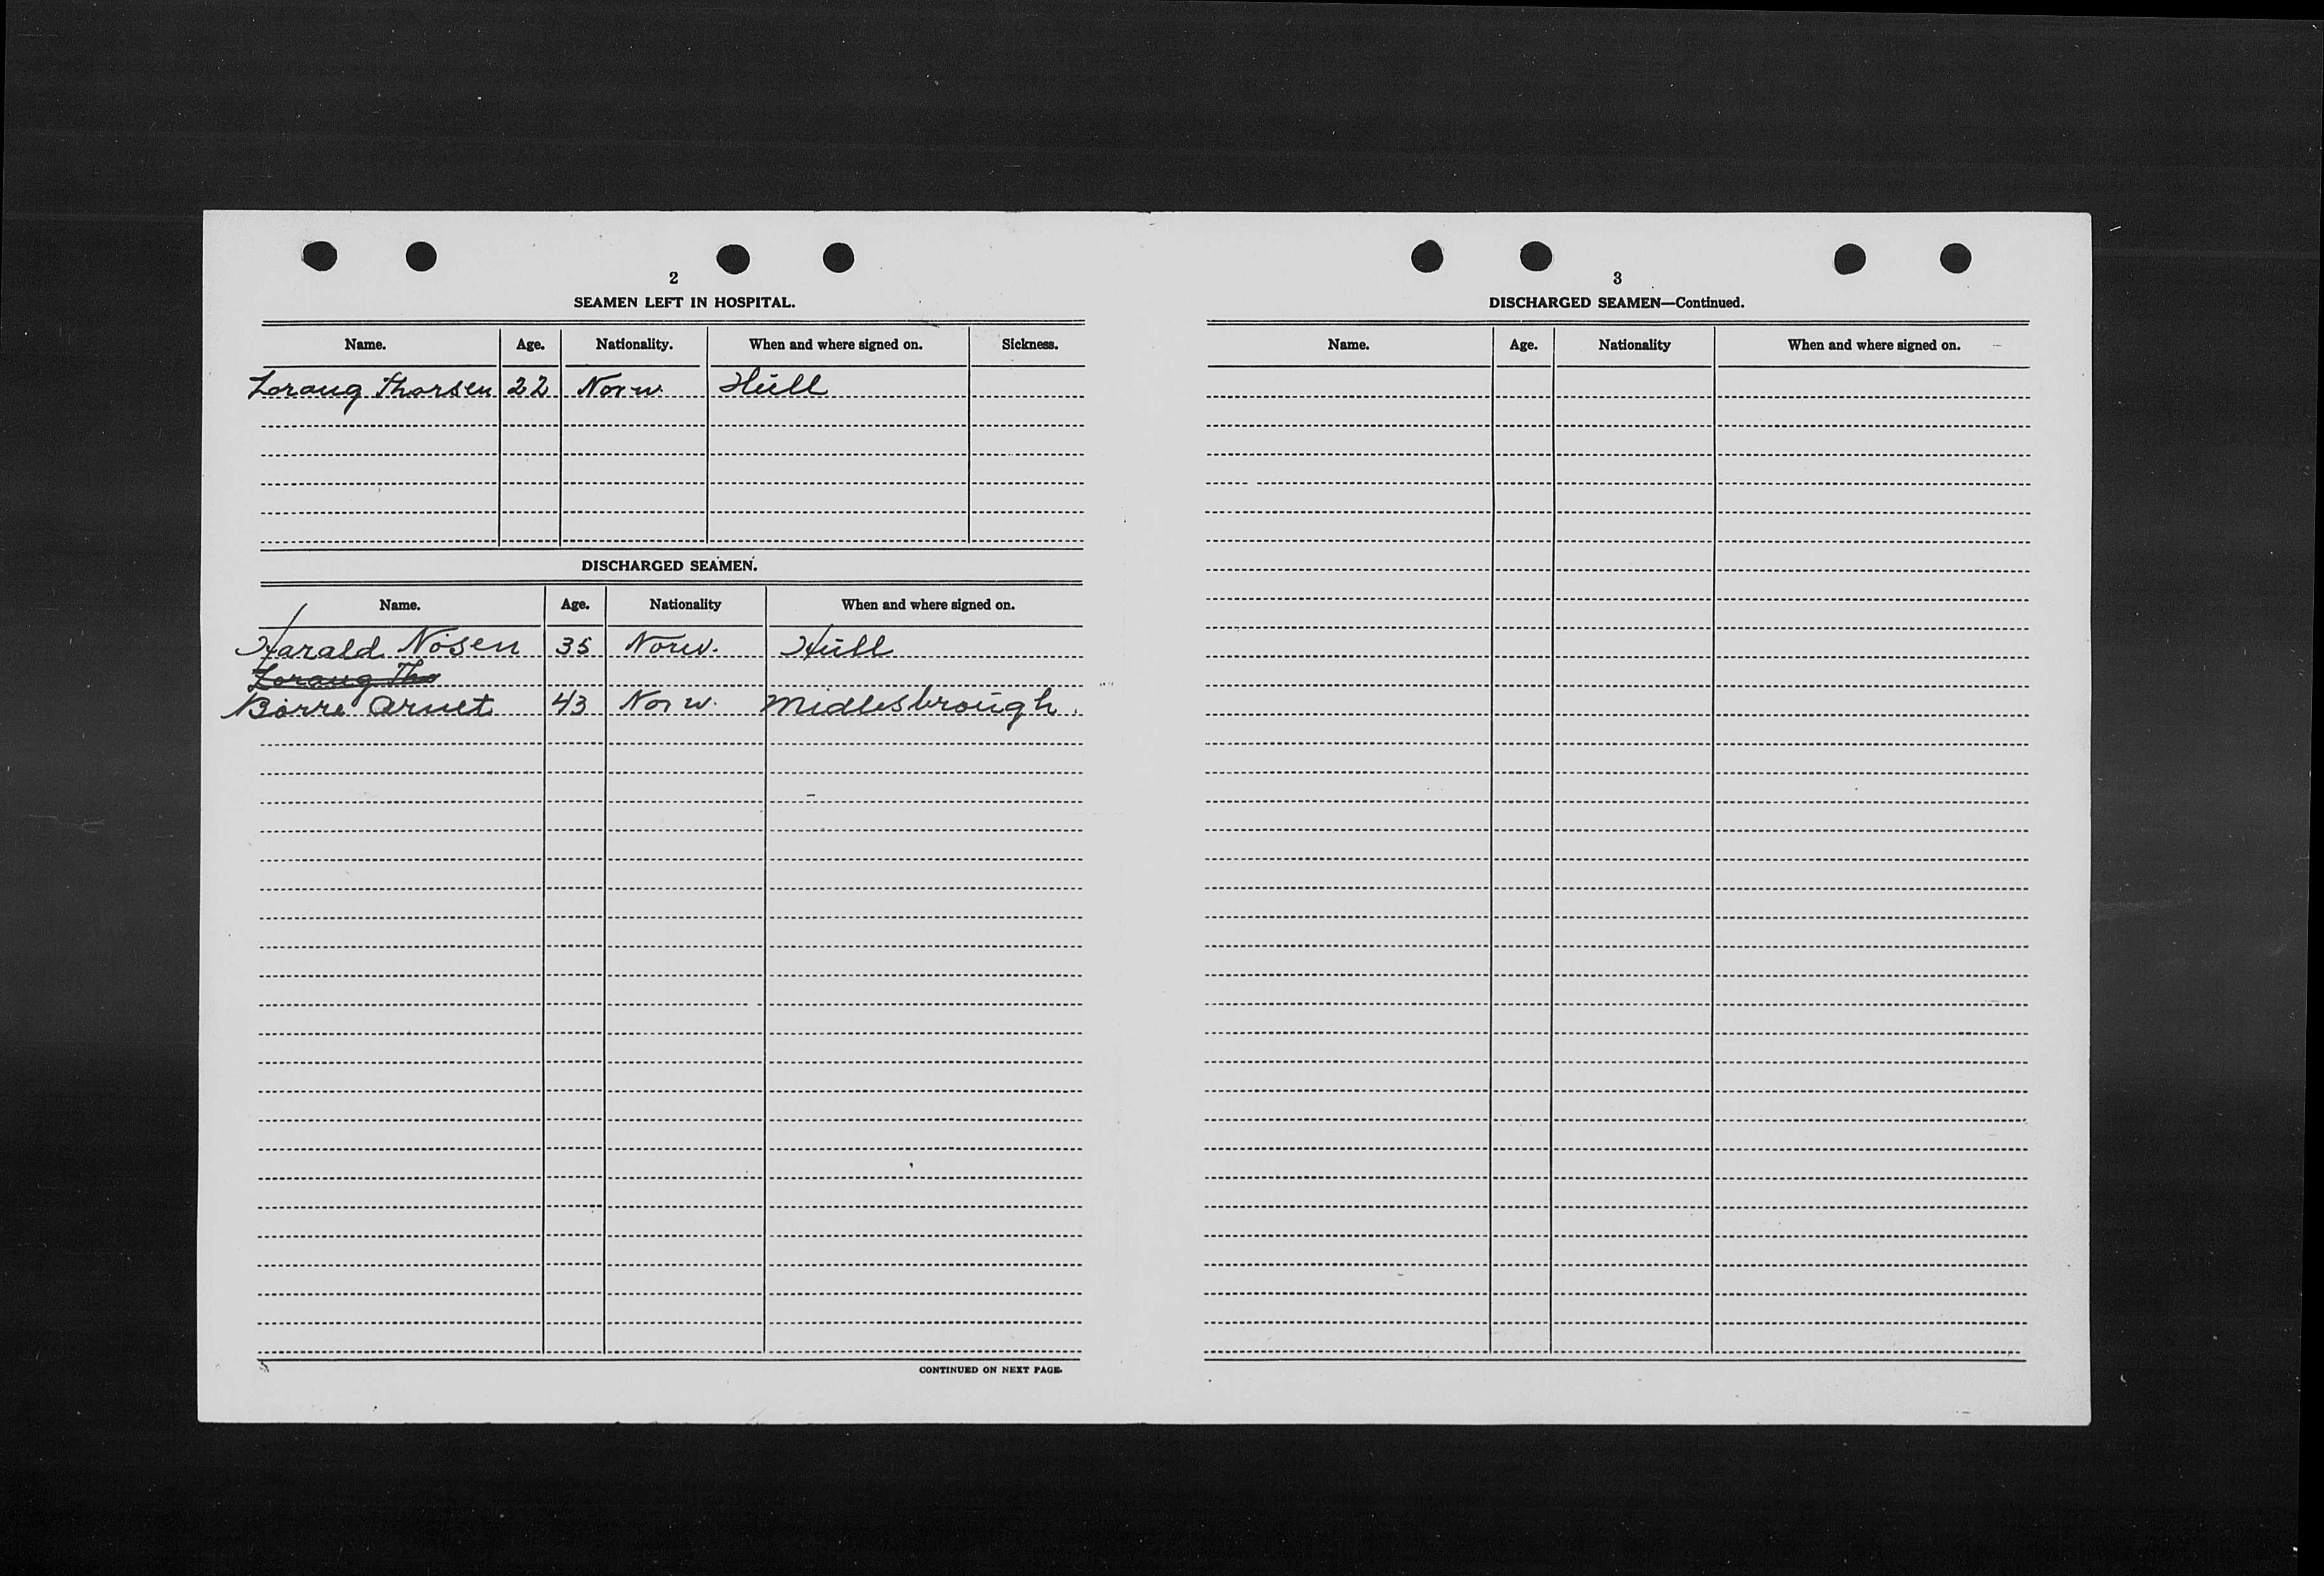 2
SEAMEN LEFT IN HOSPITAL.
Name. Age. Nationality. When and where signed on. Sickness.
Loraug Thorsen 22 Norw. Hull
DISCHARGED SEAMEN.
Name. Age. Nationality When and where signed on.
Harald Nösen 35 Norw. Hull
Loraug Tho
Börre Arnet 43 Norw. Midlesbrough.
CONTINUED ON NEXT PAGE.
3
DISCHARGED SEAMEN—Continued.
Name. Age. Nationality When and where signed on.